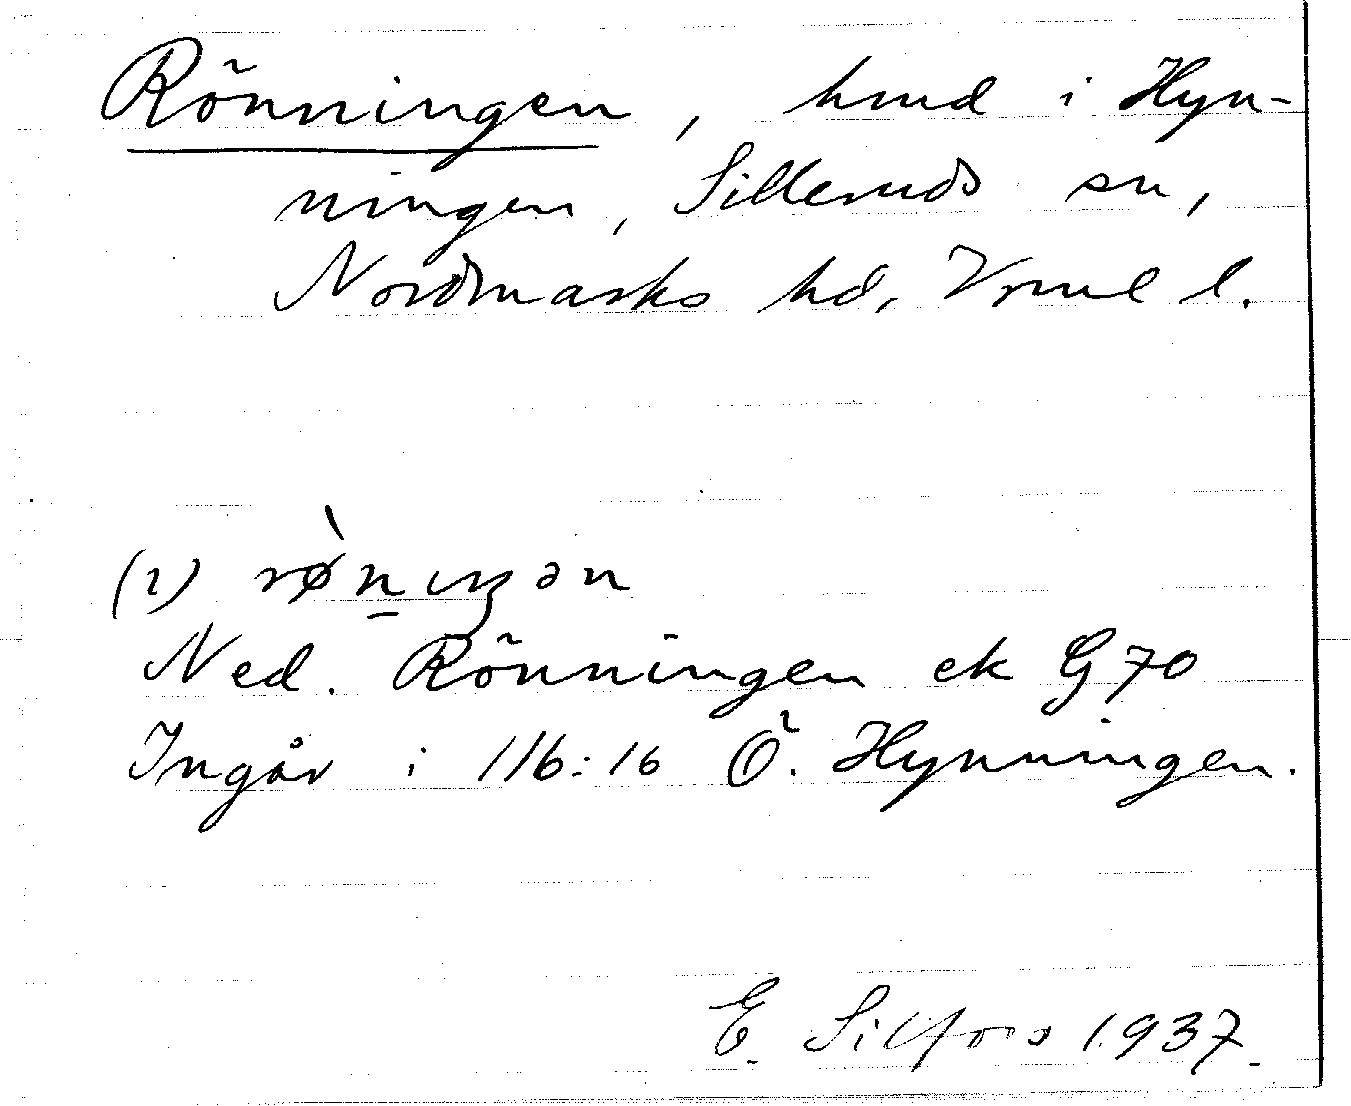 Rönningen, hmd i Hyn-
ningen, Silleruds sn,
Nordmarks hd, Vrml l.
(1) rø̀n̲ıŋən
Ned. Rönningen ek G 70
Ingår i 1/16:16 Ö. Hynningen.
E. Silfors 1937.